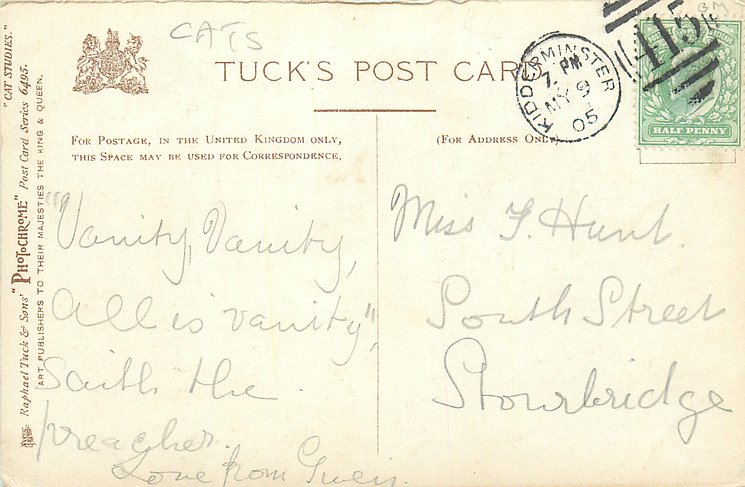 CATS
GM
TUCK'S POST CARD
KIDDERMINSTER
7. PM
MY 9
05
415
HALF PENNY
FOR POSTAGE, IN THE UNITED KINGDOM ONLY,
THIS SPACE MAY BE USED FOR CORRESPONDENCE.
(FOR ADDRESS ONLY
"CAT STUDIES."
Raphael Tuck & Sons' "PHOTOCHROME" Post Card Series 6495.
ART PUBLISHERS TO THEIR MAJESTIES THE KING & QUEEN.
"Vanity, Vanity,
All is vanity",
Saith the
preacher.
Love from Gwen.
Miss F. Hunt.
South Street
Stourbridge